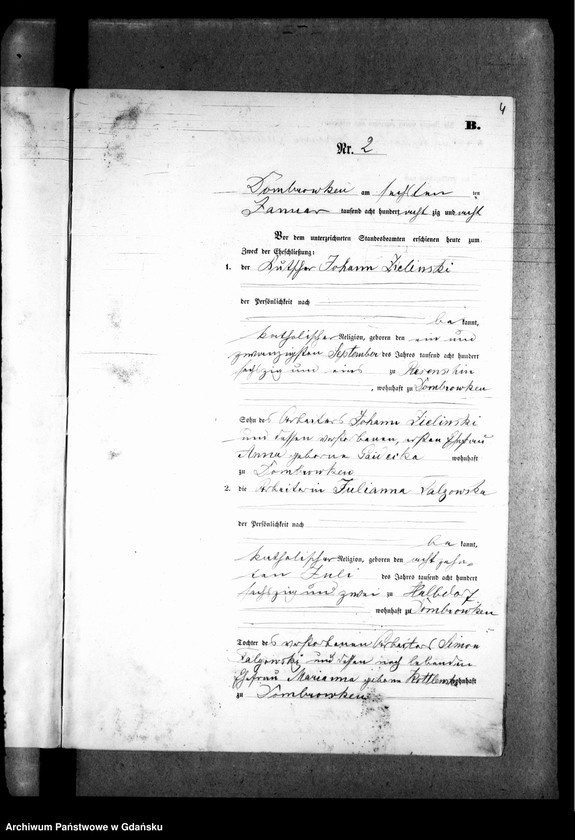 4
B.
Nr. 2
Dombrowken am sechsten ten
Januar tausend acht hundert acht zig und acht
Vor dem unterzeichneten Standesbeamten erschienen heute zum
Zweck der Eheschließung:
1. der Kutscher Johann Zielinski
der Persönlichkeit nach
be kannt,
katholischer Religion, geboren den ein und
zwanzigsten September des Jahres tausend acht hundert
sechszig und eins zu
, wohnhaft zu Dombrowken
Sohn des Arbeiters Johann Zielinski
und dessen verstorbenen, ersten Ehefrau
Anna geborne wohnhaft
zu Dombrowken
2. die Arbeiterin Julianna
der Persönlichkeit nach
be kannt,
katholischer Religion, geboren den achtzehn-
ten Juli des Jahres tausend acht hundert
sechszig und zwei zu Halbdorf
wohnhaft zu Dombrowken
Tochter des verstorbenen Arbeiters Simon
und dessen noch lebenden
Ehefrau Marianna geborne wohnhaft
zu Dombrowken
Archiwum Państwowe w Gdańsku